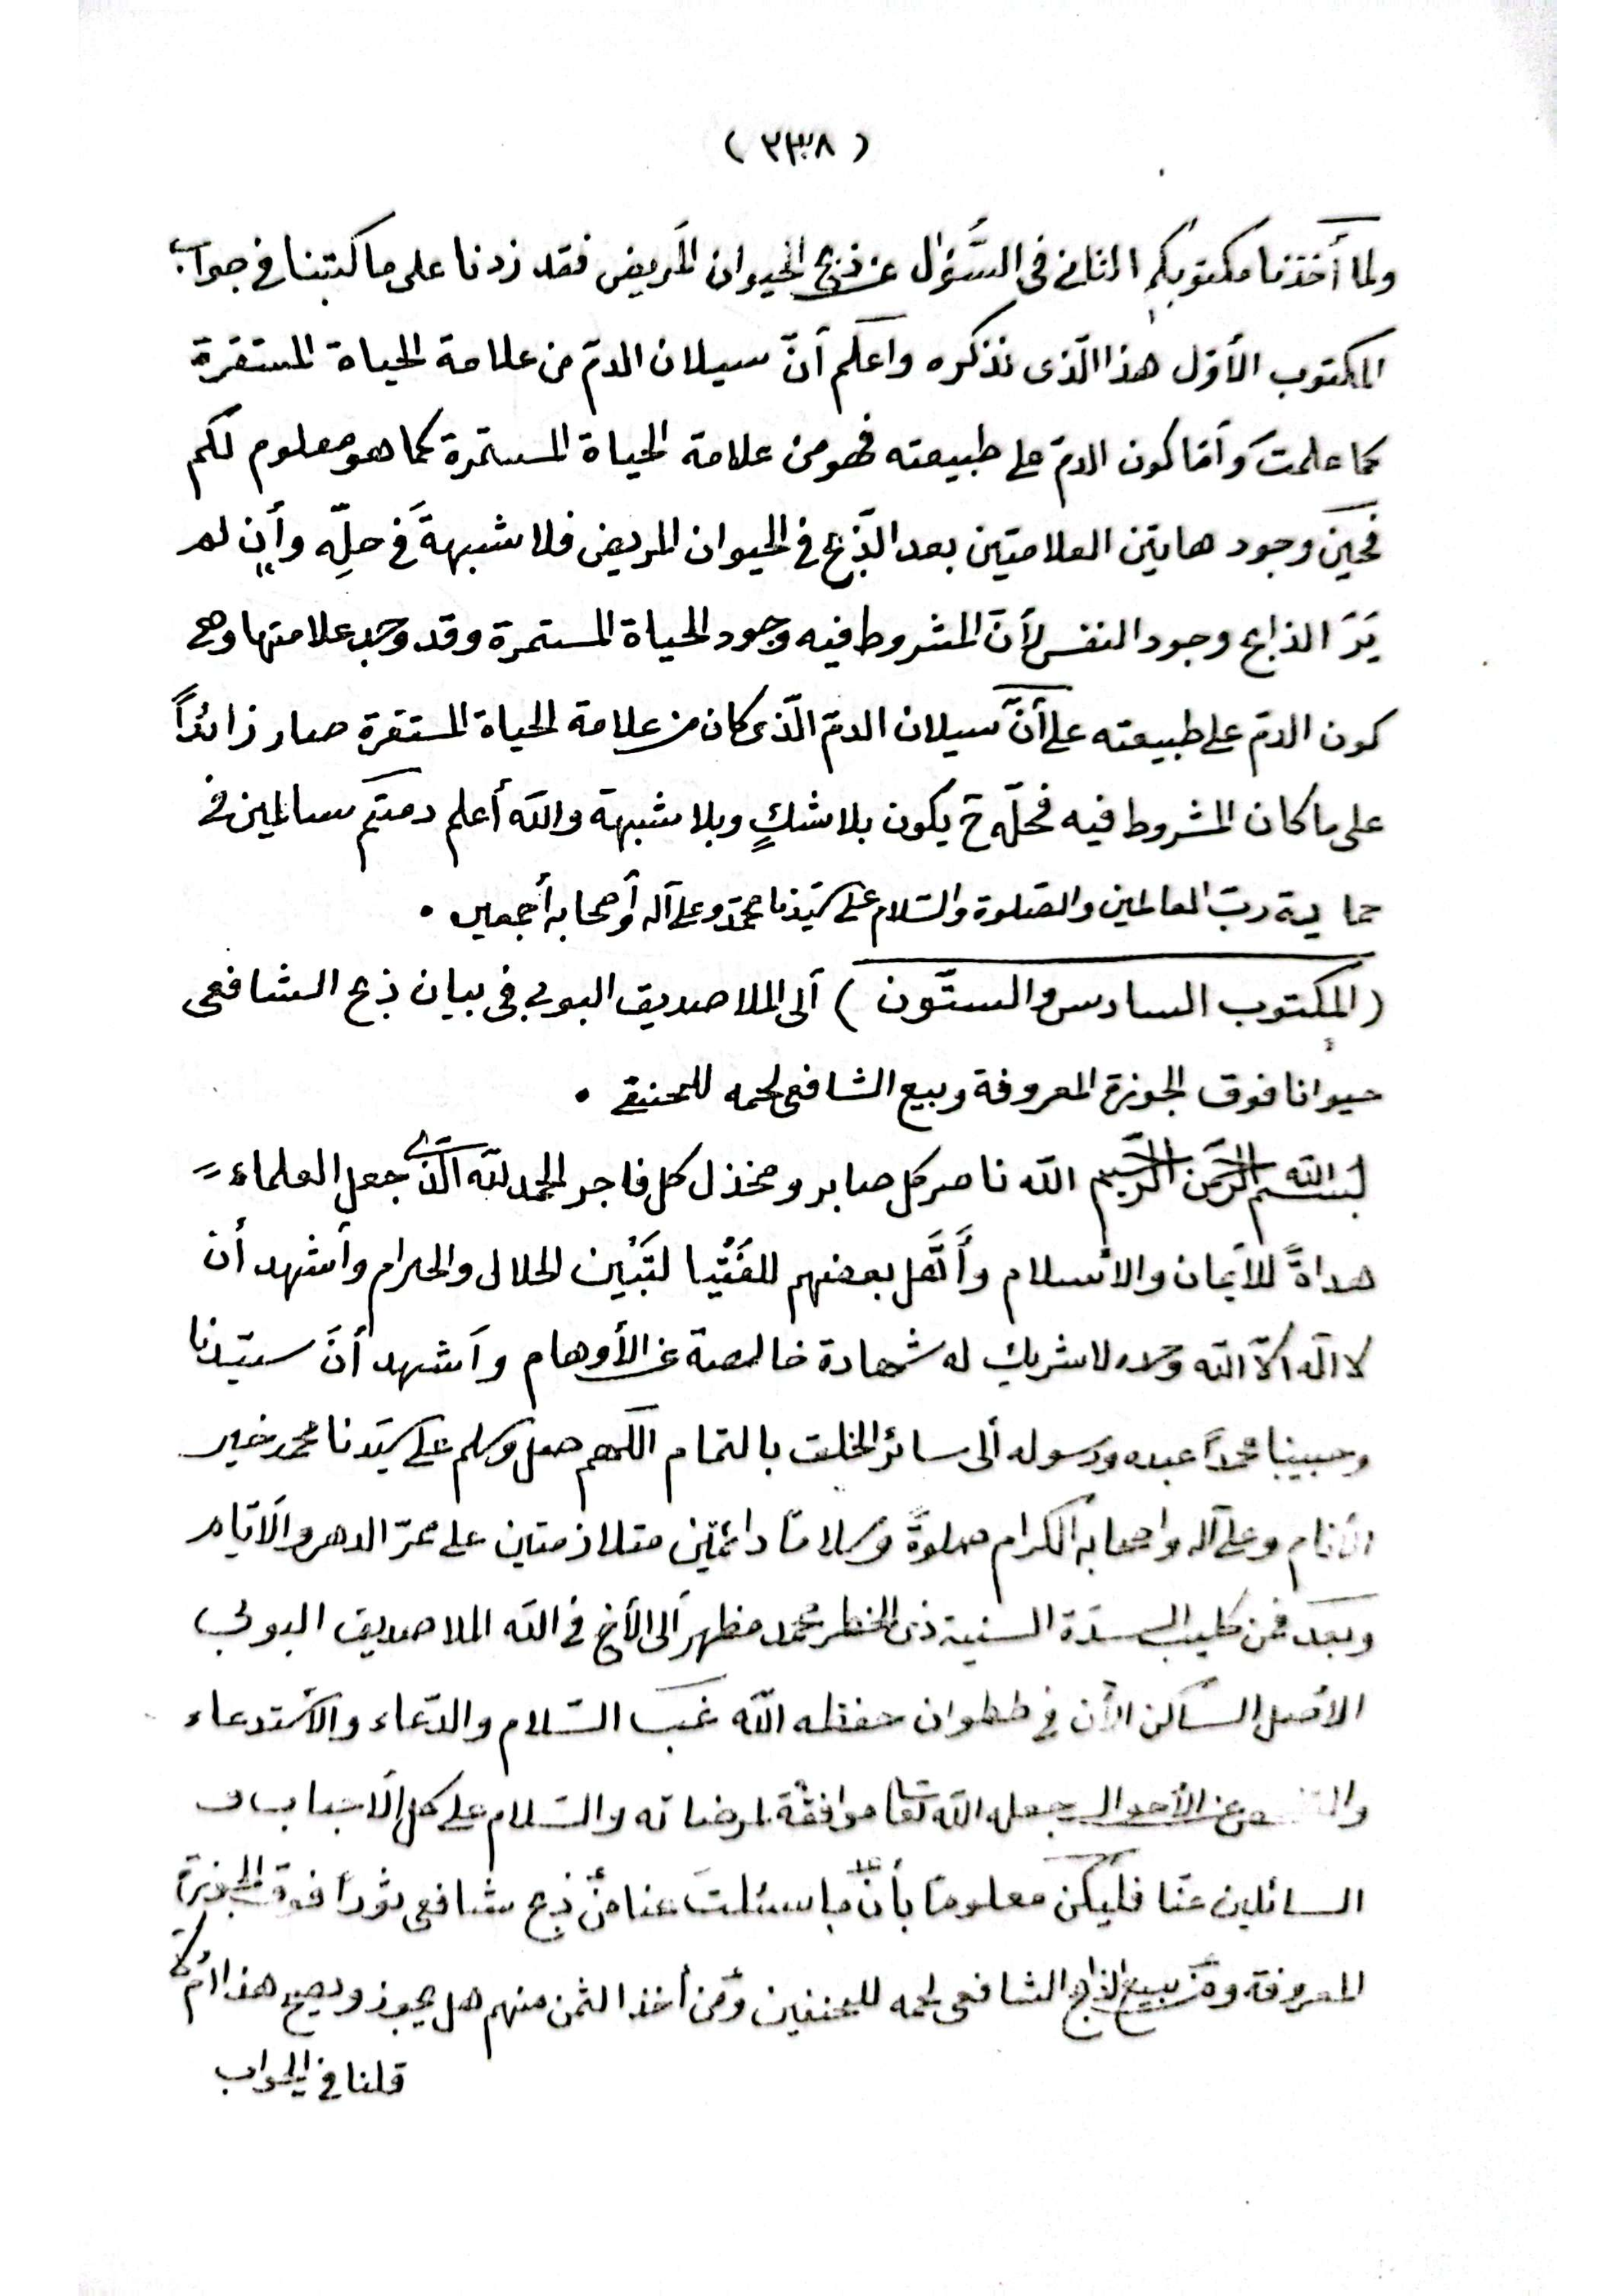 ( ٢٣٨ )
ولما أخذنا مكتوبكم الثاني في السَّؤال عن ذبح الحيوان المَريض فقد زدنا على ما كتبنا في جواب
المكتوب الأوّل هذا الّذى نذكره واعلَم أنّ سيلان الدمّ من علامة الحياة المستقرة
كما علمتَ وأمّا كون الدمّ على طبيعته فهو من علامة الحياة المستمرة كما هو معلوم لكم
فحين وجود هاتين العلامتين بعد الذّبح في الحيوان المريض فلا شبهةَ في حلِّه وأن لم
يَرَ الذابح وجود النفس لأنّ المشروط فيه وجود الحياة المستمرة وقد وجد علامتها وهى
كون الدمّ على طبيعته على أنَّ سيلان الدمّ الّذى كان من علامة الحياة المستقرة صار زائداً
على ما كان المشروط فيه فحلّه ح يكون بلا شكٍ وبلا شبهة والله أعلم دمتم سالمين في
حماية ربّ العالمين والصّلوة والسّلام على سيّدنا محمّد وعلى آله وأصحابه أجمعين .
( المكتوب السادس والستّون ) ألى الملا صديق البوبى فى بيان ذبح الشافعى
حيوانا فوق الجوزة المعروفة وبيع الشافعى لحمه للحنفي .
بسم الله الرّحمن الرّحيم الله ناصر كل صابر ومخذل كل فاجر الحمد لله الّذى جعل العلماء
هداةً للأيمان والأسلام وأَهَّل بعضهم للفَتْيا لتَبْيين الحلال والحرام وأشهد أن
لا اله الاّ الله وحده لا شريك له شهادة خالصة عن الأوهام وأشهد أنّ سيّدنا
وحبيبنا محمداً عبده ورسوله ألى سائر الخلق بالتمام اللّهم صل وسلم على سيّدنا محمد خير
الأنام وعلى آله وأصحابه الكرام صلوةً وسلامًا دائمَين متلازمتين على ممرّ الدهر والأيّام
وبعد فمن كليب السدّة السنية ذى الخطر محمد مظهر ألى الأخ فى الله الملا صديق البوبى
الأصل السّاكن الآن في ططوان حفظه الله غبّ السّلام والدّعاء والأستدعاء
عن الأحوال جعله الله تعا موافقة لمرضاته والسّلام على كل الأحباب و
السائلين عنّا فليكن معلومًا بأنّ ما سئلتَ عنا من ذبح شافعى ثورًا فوق الجوزة
المعروفة ومن بيع الذابح الشافعى لحمه للحنفين ومن أخذ الثمن منهم هل يجوز ويصح هذا
قلنا في الجواب